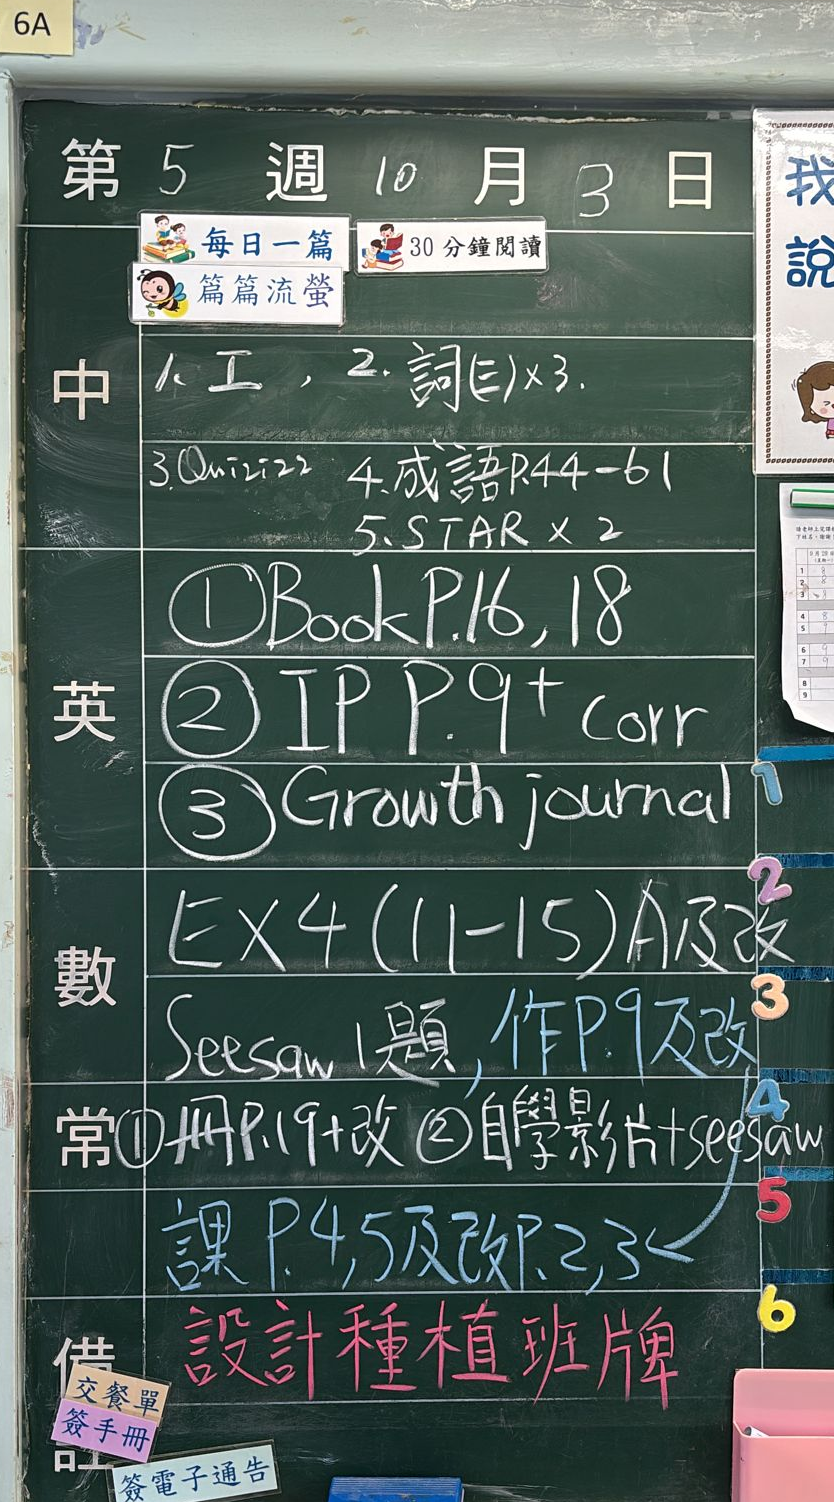 6A
第 5 週 10 月 3 日
每日一篇
30分鐘閱讀
篇篇流螢
中
1. 工 , 2. 詞(三)x3.
3.Quizizz 4.成語P.44-61
5.STAR x 2
英
①Book P.16, 18
② IP P.9+ corr
③ Growth journal
數
EX4(11-15)A及改
Seesaw 1題, 作P.9及改
常
①冊P.19+改 ②自學影片+seesaw
課 P.4,5及改P.2,3
備註
設計種植班牌
交餐單
簽手冊
簽電子通告
我
說
1
2
3
4
5
6